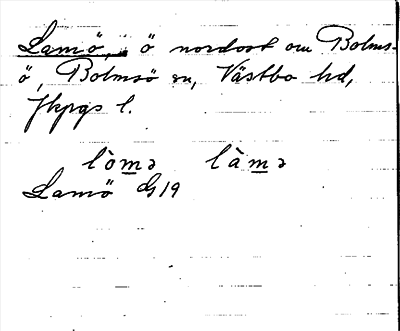 Lamö, ö nordost om Bolms-
ö, Bolmsö sn, Västbo hd,
Jkpgs l.
lòmə làmə
Lamö G 19